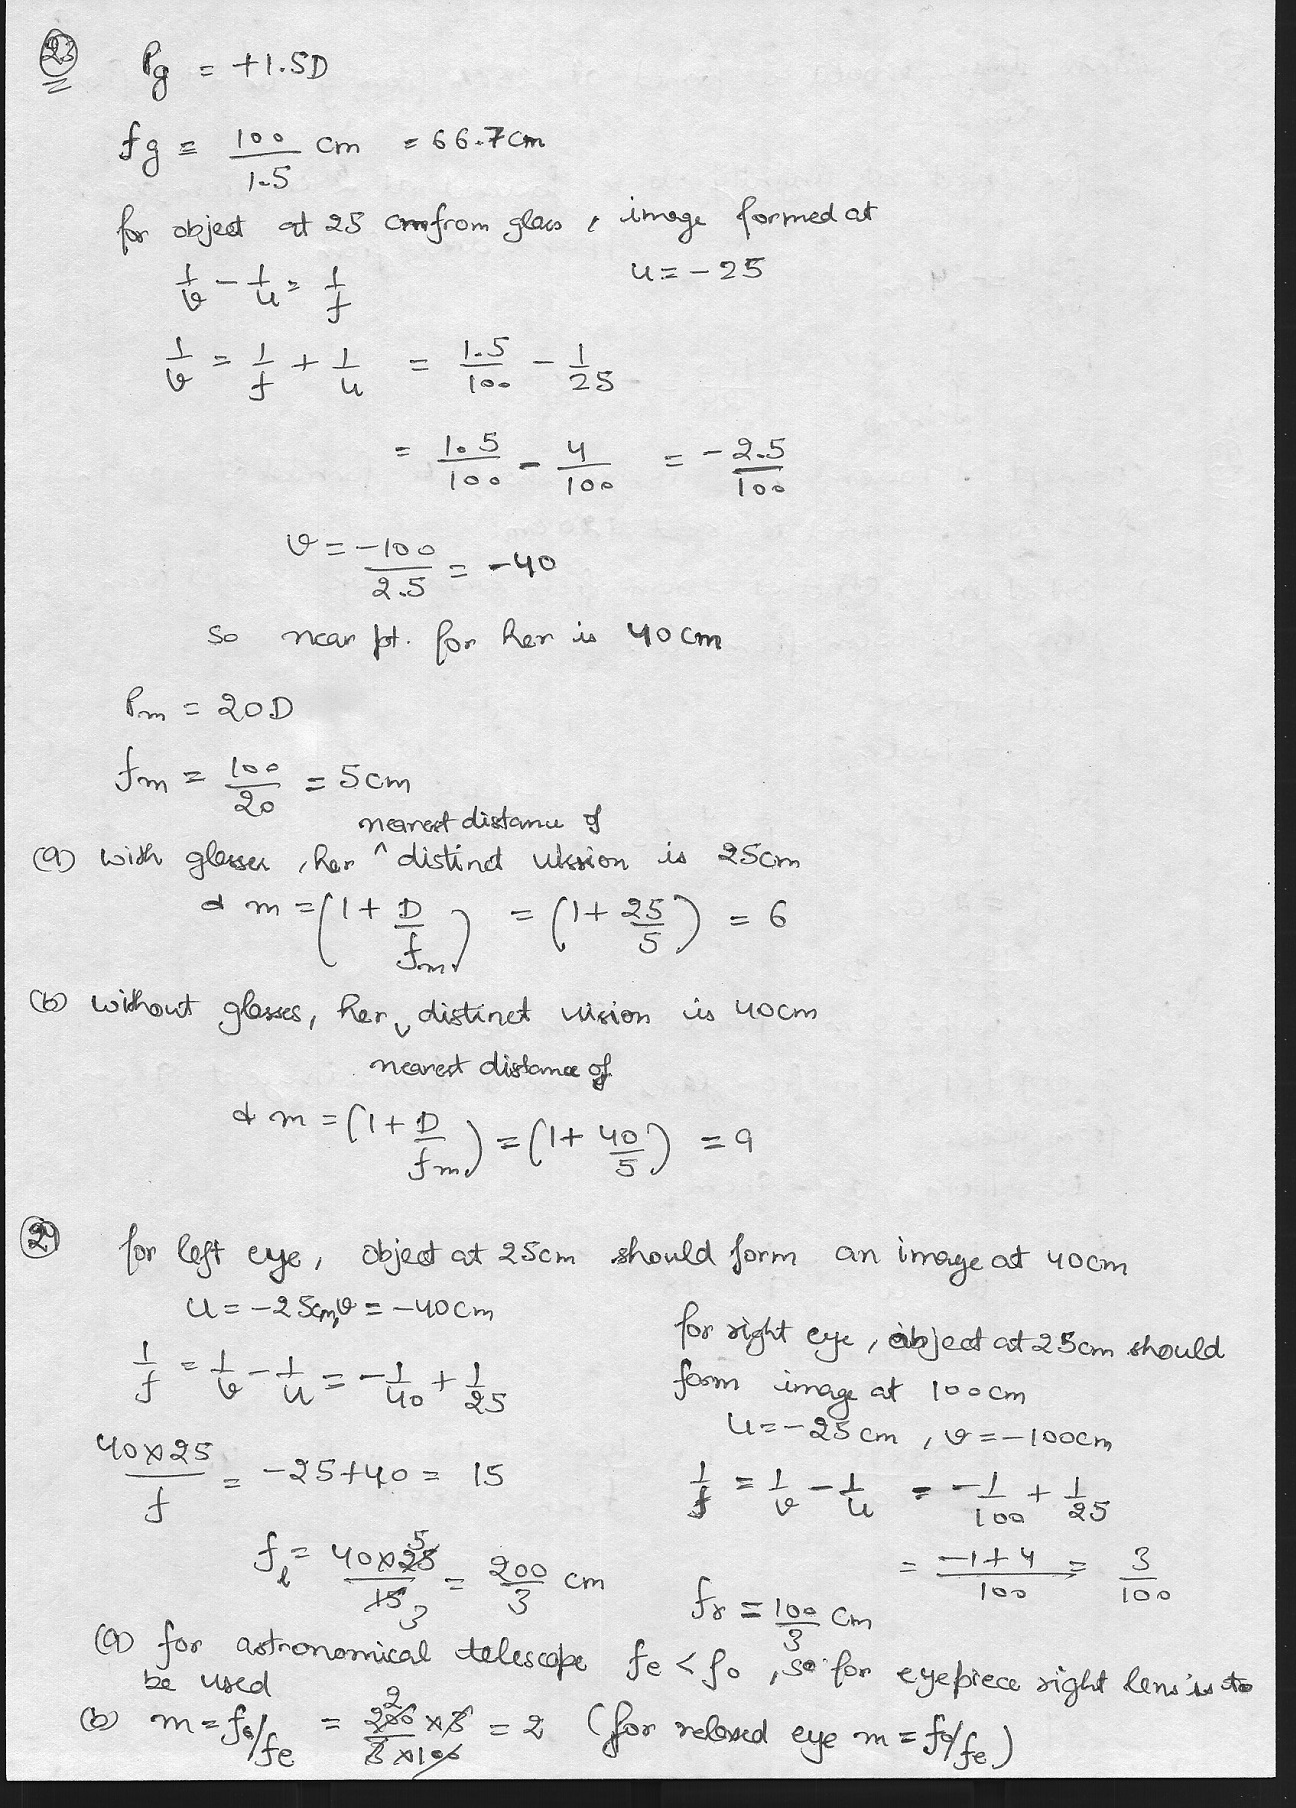 23 Pg = +1.5D
fg = 100/1.5 cm = 66.7cm
for object at 25 cm from glass, image formed at
1/v - 1/u = 1/f u = -25
1/v = 1/f + 1/u = 1.5/100 - 1/25
= 1.5/100 - 4/100 = -2.5/100
v = -100/2.5 = -40
So near pt. for her is 40cm
Pm = 20D
fm = 100/20 = 5cm
nearest distance of
(a) with glasses, her ^ distinct vission is 25cm
& m = (1 + D/fm) = (1 + 25/5) = 6
(b) without glasses, her distinct vision is 40cm
nearest distance of
& m = (1 + D/fm) = (1 + 40/5) = 9
24 for left eye, object at 25cm should form an image at 40cm
u = -25cm, v = -40cm
1/f = 1/v - 1/u = -1/40 + 1/25
40×25/f = -25+40 = 15
fl = 40×25/15 = 200/3 cm
for right eye, object at 25cm should
form image at 100cm
u = -25cm, v = -100cm
1/f = 1/v - 1/u = -1/100 + 1/25
= -1+4/100 = 3/100
fr = 100/3 cm
(a) for astronomical telescope fe < fo, so for eyepiece right lens is to
be used
(b) m = fo/fe = 200×3/3×100 = 2 (for relaxed eye m = fo/fe)